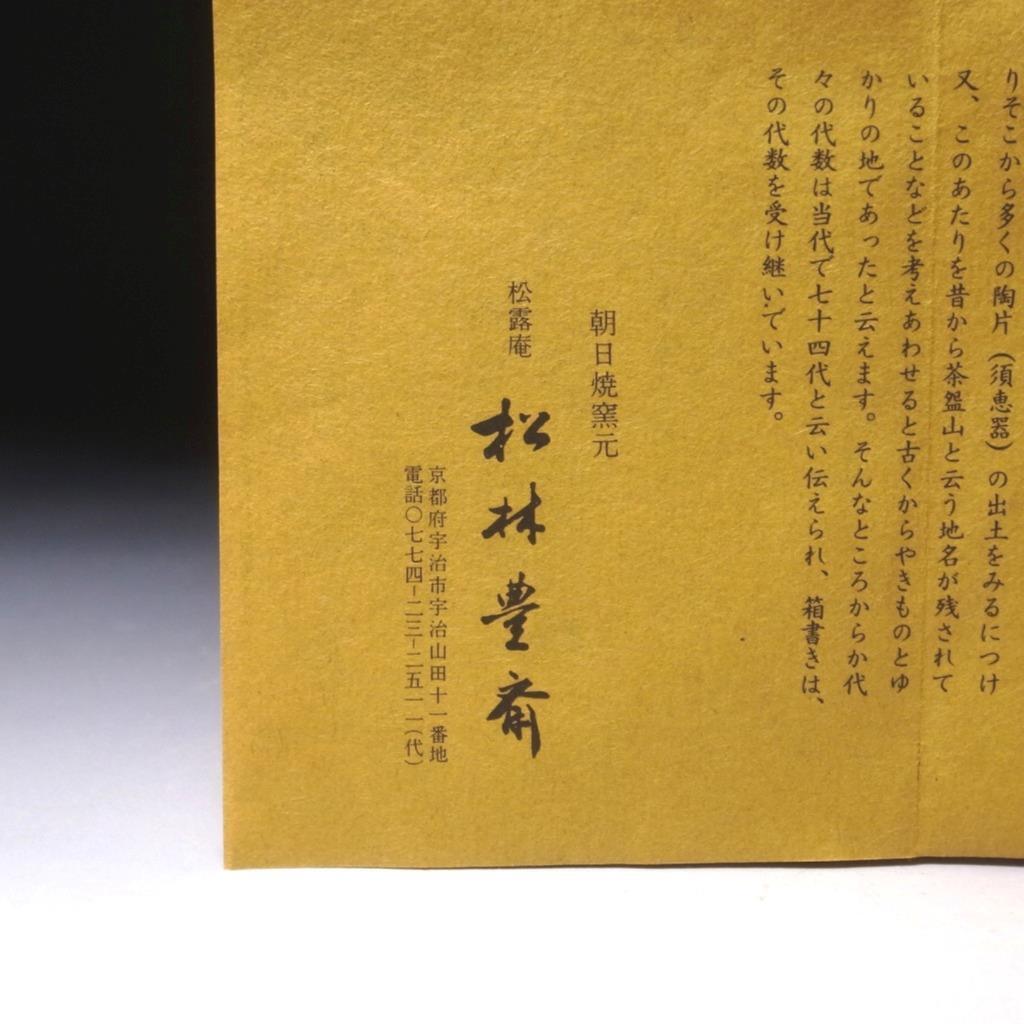 りそこから多くの陶片（須恵器）の出土をみるにつけ
又、このあたりを昔から茶盌山と云う地名が残されて
いることなどを考えあわせると古くからやきものとゆ
かりの地であったと云えます。そんなところからか代
々の代数は当代で七十四代と云い伝えられ、箱書きは、
その代数を受け継いでいます。
朝日焼窯元
松露庵 松林豊斎
京都府宇治市宇治山田十一番地
電話〇七七四-二三-二五一一(代)